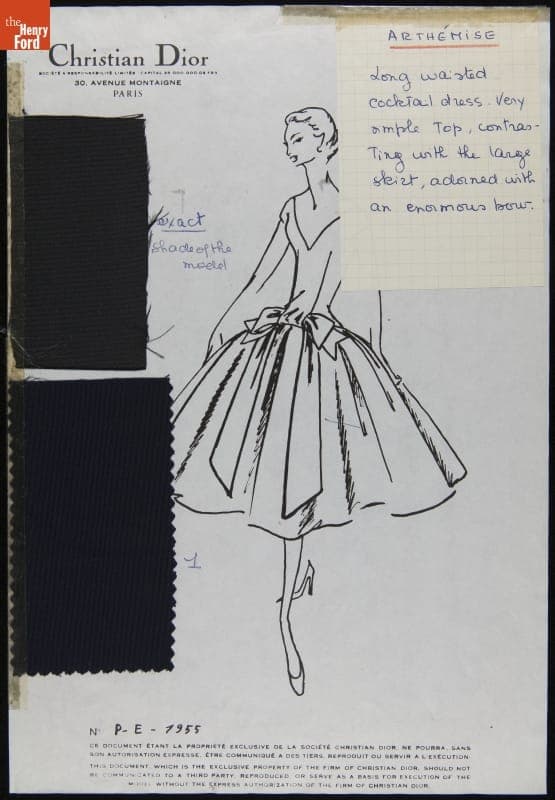 the
Henry
Ford
Christian Dior
SOCIÉTÉ A RESPONSABILITÉ LIMITÉE - CAPITAL
30, AVENUE MONTAIGNE
PARIS
ARTHÉMISE
Long waisted
cocktail dress. Very
simple Top, contras-
Ting with the large
skirt, adorned with
an enormous bow.
exact
shade of the
model
1
N° P-E-1955
CE DOCUMENT ÉTANT LA PROPRIÉTÉ EXCLUSIVE DE LA SOCIÉTÉ CHRISTIAN DIOR, NE POURRA, SANS
SON AUTORISATION EXPRESSE, ÊTRE COMMUNIQUÉ A DES TIERS, REPRODUIT OU SERVIR A L'EXÉCUTION.
THIS DOCUMENT, WHICH IS THE EXCLUSIVE PROPERTY OF THE FIRM OF CHRISTIAN DIOR, SHOULD NOT
BE COMMUNICATED TO A THIRD PARTY, REPRODUCED, OR SERVE AS A BASIS FOR EXECUTION OF THE
MODEL WITHOUT THE EXPRESS AUTHORIZATION OF THE FIRM OF CHRISTIAN DIOR.